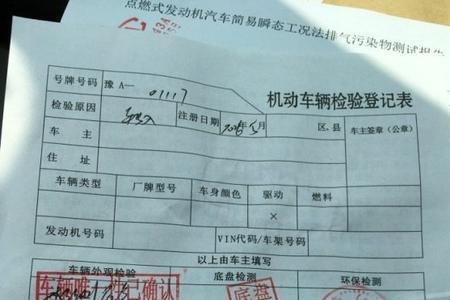 点燃式发动机汽车简易瞬态工况法排气污染物测试报告
机动车辆检验登记表
号牌号码 豫 A— 01117
检验原因 转入 注册日期 年 月 区.县 车主签章(公章)
车 主
住 址
车辆类型 厂牌型号 车身颜色 驱动 燃料
×
发动机号 VIN代码/车架号码
以上由车主填写
车辆外观检验 底盘检测 环保检测
车辆唯一性已确认 底盘